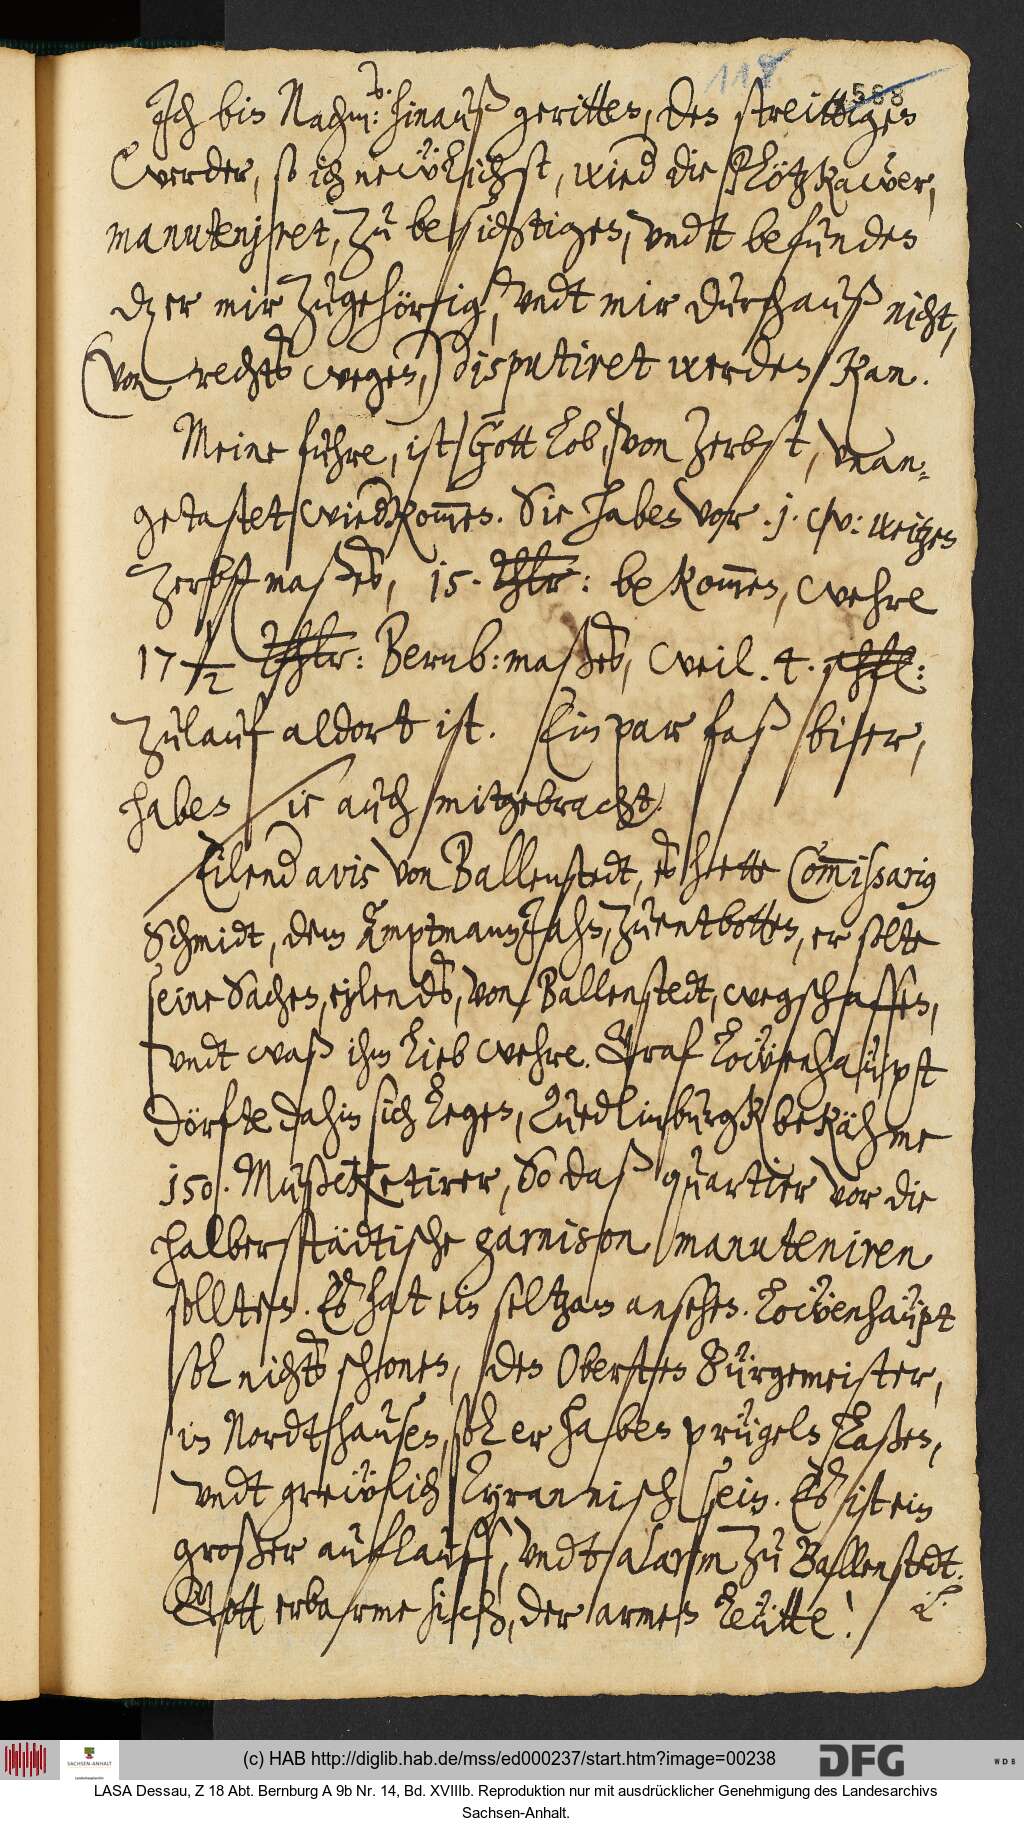 118
588
Ich bin Nachm: hinauß geritten, den streittigen
Werder, so ich newlichst, wied die Plötzkawer,
manutenjret, zu besichtigen, undt befunden
dz er mir zugehörig, undt mir durchauß nicht,
(von rechts wegen,) disputiret werden kan.
Meine fuhre, ist Gott lob, von Zerbst, unan-
getastet wiedkommen. Sie haben vor .j. w: weitzen
Zerbst maßes, 15. Thlr: bekommen, wehre
17 1/2 Thlr: Bernb: maßes, weil .4. schfl:
zulauf aldort ist. Ein par faß bier,
haben sie auch mitgebracht.
Eilend avis von Ballenstedt, es hette Commissarius
Schmidt, dem Amptmann Jahn, zuentbotten, er solte
seine Sachen, eylends, von Ballenstedt, wegschaffen,
undt waß ihm lieb wehre. Graf Löwenhaüpt
dörfte dahin sich legen, Quedlinburgk bekähme
150. Mußketirer, So daß quartier vor die
halberstädtische garnison manuteniren
sollten. Es hat ein seltzam ansehen. Löwenhaüpt
sol nichts schonen, den Obersten Bürgemeister,
in Nordthausen, sol er haben prügeln laßen,
undt grewlich tyrannisch sein. Es ist ein
großer auflauff, undt alarm zu Ballenstedt.
Gott erbarme sich, der armen leütte!
(c) HAB http://diglib.hab.de/mss/ed000237/start.htm?image=00238
SACHSEN-ANHALT
DFG
WDB
LASA Dessau, Z 18 Abt. Bernburg A 9b Nr. 14, Bd. XVIIIb. Reproduktion nur mit ausdrücklicher Genehmigung des Landesarchivs
Sachsen-Anhalt.